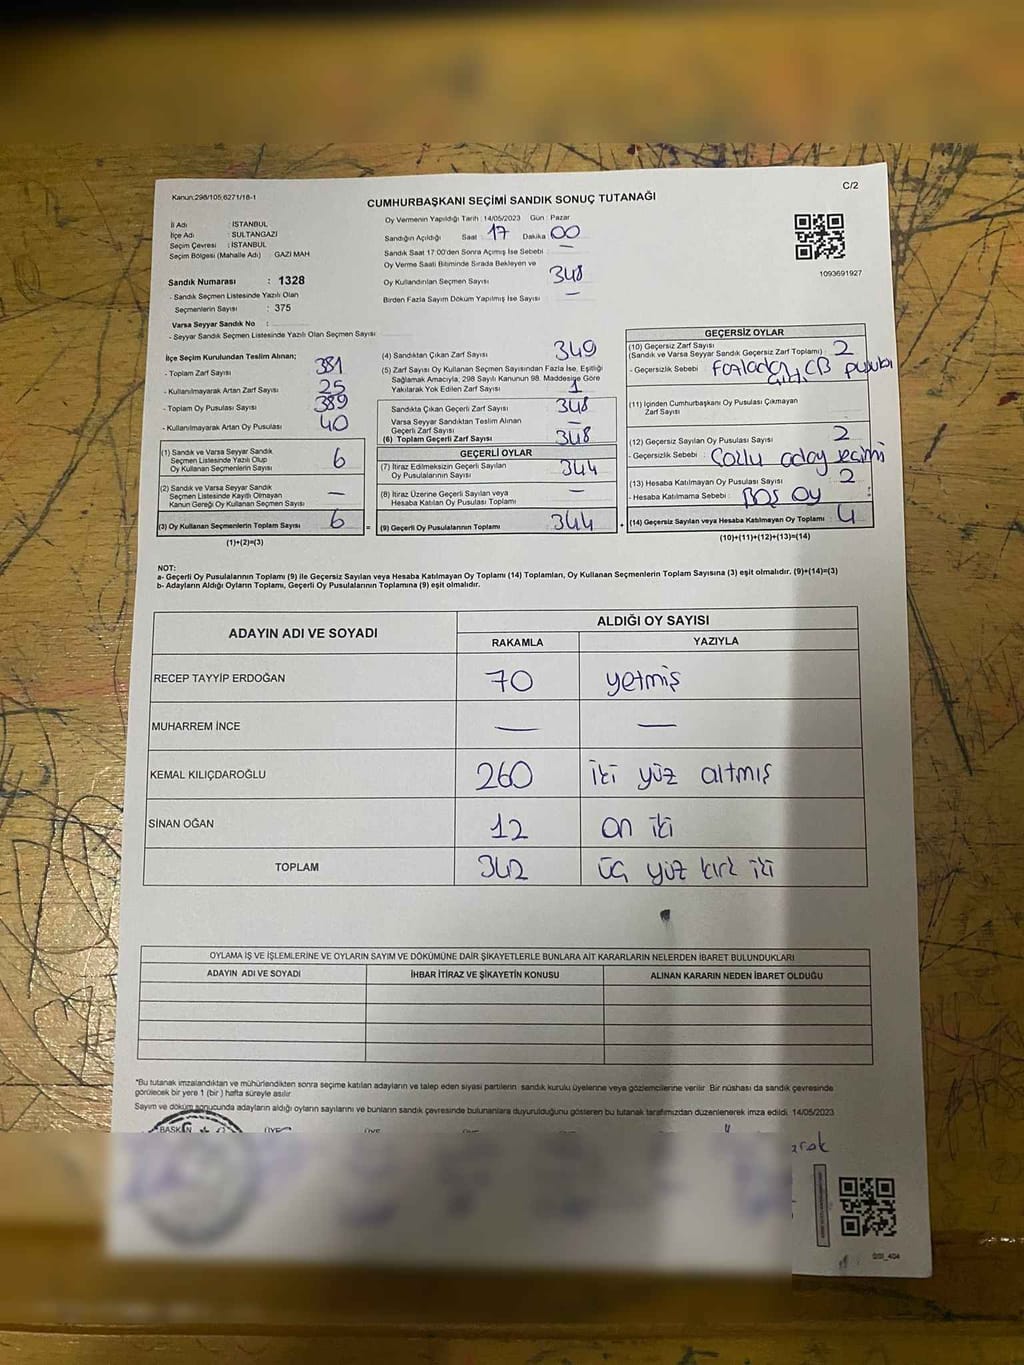 Kanun:298/105,6271/18-1
C/2
CUMHURBAŞKANI SEÇİMİ SANDIK SONUÇ TUTANAĞI
İl Adı : İSTANBUL
İlçe Adı : SULTANGAZİ
Seçim Çevresi : İSTANBUL
Seçim Bölgesi (Mahalle Adı) GAZİ MAH
Sandık Numarası : 1328
- Sandık Seçmen Listesinde Yazılı Olan
Seçmenlerin Sayısı : 375
Varsa Seyyar Sandık No :
- Seyyar Sandık Seçmen Listesinde Yazılı Olan Seçmen Sayısı:
Oy Vermenin Yapıldığı Tarih : 14/05/2023 Gün : Pazar
Sandığın Açıldığı Saat 17 Dakika 00
Sandık Saat 17.00'den Sonra Açımış İse Sebebi : —
Oy Verme Saati Bitiminde Sırada Bekleyen ve
Oy Kullandırılan Seçmen Sayısı 348
Birden Fazla Sayım Döküm Yapılmış İse Sayısı —
1093691927
İlçe Seçim Kurulundan Teslim Alınan;
- Toplam Zarf Sayısı 381
- Kullanılmayarak Artan Zarf Sayısı 25
- Toplam Oy Pusulası Sayısı 389
- Kullanılmayarak Artan Oy Pusulası 40
(1) Sandık ve Varsa Seyyar Sandık
Seçmen Listesinde Yazılı Olup
Oy Kullanan Seçmenlerin Sayısı 6
(2) Sandık ve Varsa Seyyar Sandık
Seçmen Listesinde Kayıtlı Olmayan
Kanun Gereği Oy Kullanan Seçmen Sayısı —
(3) Oy Kullanan Seçmenlerin Toplam Sayısı 6 =
(1)+(2)=(3)
(4) Sandıktan Çıkan Zarf Sayısı 349
(5) Zarf Sayısı Oy Kullanan Seçmen Sayısından Fazla İse, Eşitliği
Sağlamak Amacıyla, 298 Sayılı Kanunun 98. Maddesine Göre
Yakılarak Yok Edilen Zarf Sayısı 1
Sandıkta Çıkan Geçerli Zarf Sayısı 348
Varsa Seyyar Sandıktan Teslim Alınan
Geçerli Zarf Sayısı —
(6) Toplam Geçerli Zarf Sayısı 348
GEÇERLİ OYLAR
(7) İtiraz Edilmeksizin Geçerli Sayılan
Oy Pusulalarının Sayısı 344
(8) İtiraz Üzerine Geçerli Sayılan veya
Hesaba Katılan Oy Pusulası Toplamı —
(9) Geçerli Oy Pusulalarının Toplamı 344 +
GEÇERSİZ OYLAR
(10) Geçersiz Zarf Sayısı
(Sandık ve Varsa Seyyar Sandık Geçersiz Zarf Toplamı) 2
- Geçersizlik Sebebi : Fazladan CB pusulası
(11) İçinden Cumhurbaşkanı Oy Pusulası Çıkmayan
Zarf Sayısı
(12) Geçersiz Sayılan Oy Pusulası Sayısı 2
- Geçersizlik Sebebi : Çoklu aday seçimi
(13) Hesaba Katılmayan Oy Pusulası Sayısı 2
- Hesaba Katılmama Sebebi : Boş oy
(14) Geçersiz Sayılan veya Hesaba Katılmayan Oy Toplamı 4
(10)+(11)+(12)+(13)=(14)
NOT:
a- Geçerli Oy Pusulalarının Toplamı (9) ile Geçersiz Sayılan veya Hesaba Katılmayan Oy Toplamı (14) Toplamları, Oy Kullanan Seçmenlerin Toplam Sayısına (3) eşit olmalıdır. (9)+(14)=(3)
b- Adayların Aldığı Oyların Toplamı, Geçerli Oy Pusulalarının Toplamına (9) eşit olmalıdır.
ADAYIN ADI VE SOYADI
ALDIĞI OY SAYISI
RAKAMLA YAZIYLA
RECEP TAYYİP ERDOĞAN 70 yetmiş
MUHARREM İNCE — —
KEMAL KILIÇDAROĞLU 260 iki yüz altmış
SİNAN OĞAN 12 on iki
TOPLAM 342 üç yüz kırk iki
OYLAMA İŞ VE İŞLEMLERİNE VE OYLARIN SAYIM VE DÖKÜMÜNE DAİR ŞİKAYETLERLE BUNLARA AİT KARARLARIN NELERDEN İBARET BULUNDUKLARI
ADAYIN ADI VE SOYADI İHBAR İTİRAZ VE ŞİKAYETİN KONUSU ALINAN KARARIN NEDEN İBARET OLDUĞU
*Bu tutanak imzalandıktan ve mühürlendikten sonra seçime katılan adayların ve talep eden siyasi partilerin sandık kurulu üyelerine veya gözlemcilerine verilir. Bir nüshası da sandık çevresinde
görülecek bir yere 1 (bir) hafta süreyle asılır.
Sayım ve döküm sonucunda adayların aldığı oyların sayılarını ve bunların sandık çevresinde bulunanlara duyurulduğunu gösteren bu tutanak tarafımızdan düzenlenerek imza edildi. 14/05/2023
BAŞKAN ÜYE ÜYE